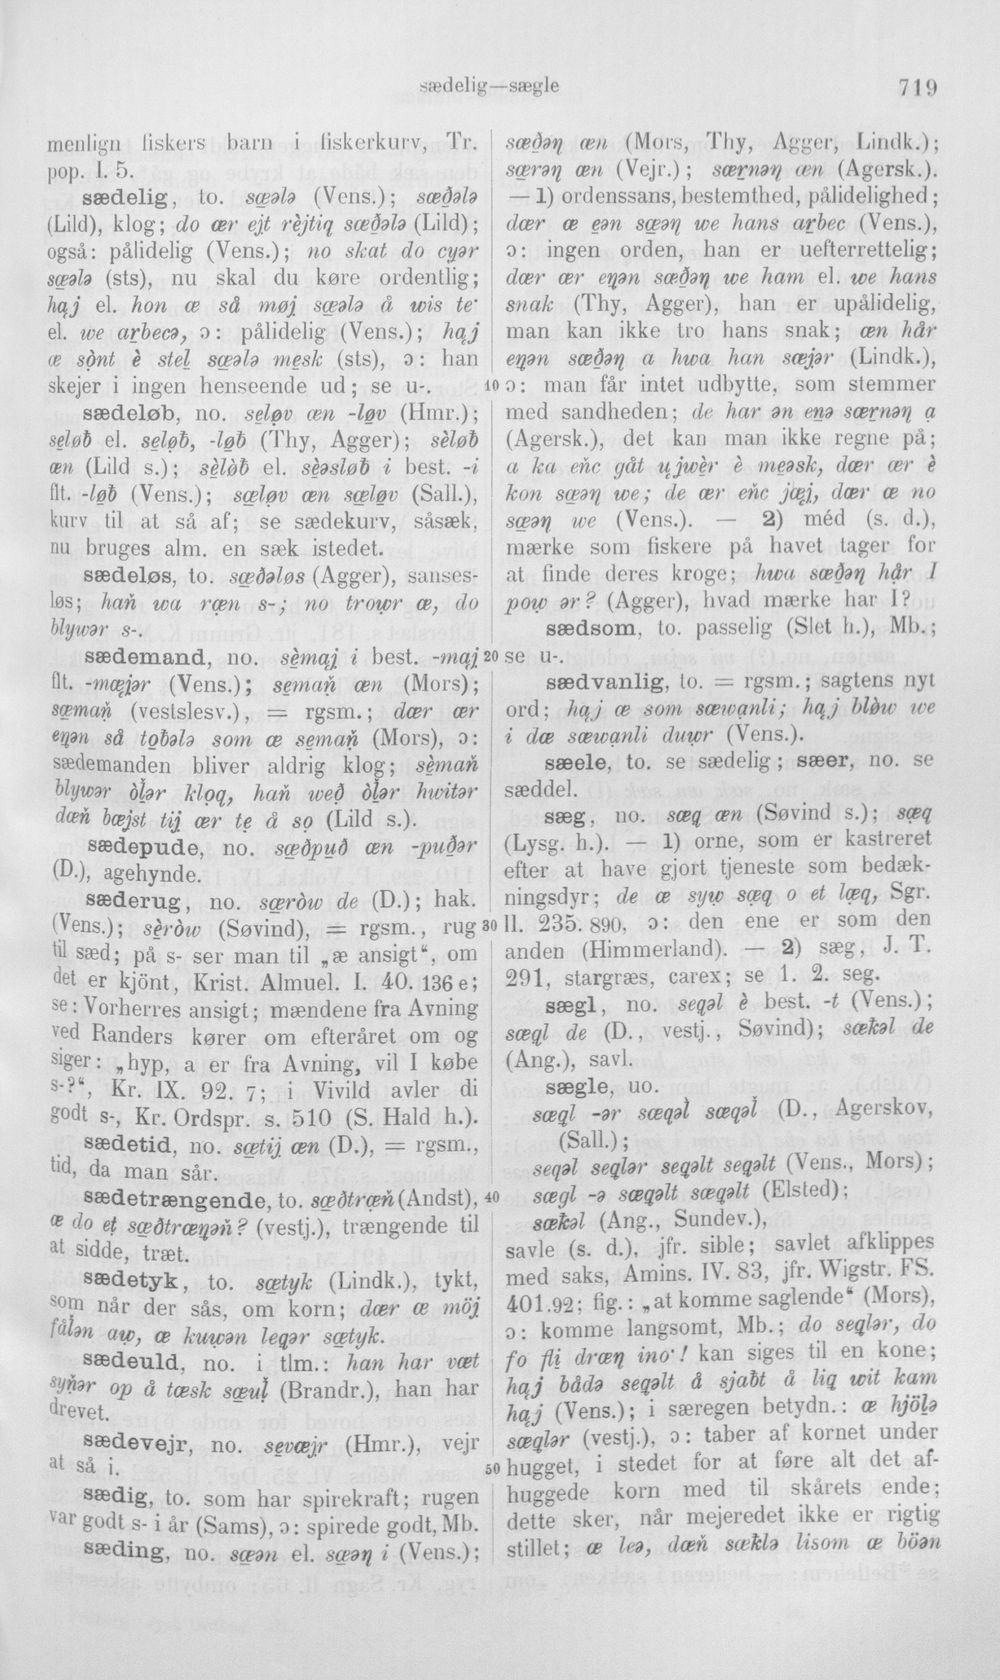 sædelig—sægle 719
menlign fiskers barn i fiskerkurv, Tr.
pop. I. 5.
sædelig, to. sœələ (Vens.); sœðələ
(Lild), klog; do œr ejt rèjtiq sœðələ (Lild);
også: pålidelig (Vens.); no skat do cyər
sœələ (sts), nu skal du køre ordentlig;
hąj el. hon œ så møj sœələ å wis te·
el. we arbecə, ɔ: pålidelig (Vens.); hąj
œ sònt è stel sœələ mesk (sts), ɔ: han
skejer i ingen henseende ud; se u-.
sædeløb, no. seløv œn -løv (Hmr.);
seløƀ el. seløƀ, -løƀ (Thy, Agger); sèløƀ
œn (Lild s.); sèlòƀ el. sèəsløƀ i best. -i
flt. -løƀ (Vens.); sœløv œn sœløv (Sall.),
kurv til at så af; se sædekurv, såsæk,
nu bruges alm. en sæk istedet.
sædeløs, to. sœðələs (Agger), sanses-
løs; hań wa rœn s-; no trowr œ, do
blywər s-.
sædemand, no. sèmąj i best. -mąj
flt. -mœjər (Vens.); semań œn (Mors);
sœmań (vestslesv.), = rgsm.; dœr œr
eŋən så toƀələ som œ semań (Mors), ɔ:
sædemanden bliver aldrig klog; sèmań
blywər òlər kloq, hań weð òlər hwitər
dœń bœjst tij œr te å so (Lild s.).
sædepude, no. sœðpuð œn -puðər
(D.), agehynde.
sæderug, no. sœròw de (D.); hak.
(Vens.); sèròw (Søvind), = rgsm., rug
til sæd; på s- ser man til „æ ansigt“, om
det er kjönt, Krist. Almuel. I. 40. 136 e;
se: Vorherres ansigt; mændene fra Avning
ved Randers kører om efteråret om og
siger: „hyp, a er fra Avning, vil I købe
s-?“, Kr. IX. 92. 7; i Vivild avler di
godt s-, Kr. Ordspr. s. 510 (S. Hald h.).
sædetid, no. sœtij œn (D.), = rgsm.,
tid, da man sår.
sædetrængende, to. sœðtrœń (Andst),
œ do et sœðtrœŋəń? (vestj.), trængende til
at sidde, træt.
sædetyk, to. sœtyk (Lindk.), tykt,
som når der sås, om korn; dœr œ möj
fålən aw, œ kuwən leqər sœtyk.
sædeuld, no. i tlm.: han har vœt
syńər op å tœsk sœul (Brandr.), han har
drevet.
sædevejr, no. sevœjr (Hmr.), vejr
at så i.
sædig, to. som har spirekraft; rugen
var godt s- i år (Sams), ɔ: spirede godt, Mb.
sæding, no. sœən el. sœəŋ i (Vens.);
sœðəŋ œn (Mors, Thy, Agger, Lindk.);
sœrəŋ œn (Vejr.); sœrnəŋ œn (Agersk.).
— 1) ordenssans, bestemthed, pålidelighed;
dœr œ eən sœəŋ we hans arbec (Vens.),
ɔ: ingen orden, han er uefterrettelig;
dœr œr eŋən sœðəŋ we ham el. we hans
snak (Thy, Agger), han er upålidelig,
man kan ikke tro hans snak; œn hår
eŋən sœðəŋ a hwa han sœjər (Lindk.),
10 ɔ: man får intet udbytte, som stemmer
med sandheden; de har ən enə sœrnəŋ a
(Agersk.), det kan man ikke regne på;
a ka eńc gåt ųjwèr è meəsk, dœr œr è
kon sœəŋ we; de œr eńc jœj, dœr œ no
sœəŋ we (Vens.). — 2) méd (s. d.),
mærke som fiskere på havet tager for
at finde deres kroge; hwa sœðəŋ hår I
pow ər? (Agger), hvad mærke har I?
sædsom, to. passelig (Slet h.), Mb.;
20 se u-.
sædvanlig, to. = rgsm.; sagtens nyt
ord; hąj œ som sœwanli; hąj blòw we
i dœ sœwanli duwr (Vens.).
sæele, to. se sædelig; sæer, no. se
sæddel.
sæg, no. sœq œn (Søvind s.); sœq
(Lysg. h.). — 1) orne, som er kastreret
efter at have gjort tjeneste som bedæk-
ningsdyr; de œ syw sœq o et lœq, Sgr.
30 II. 235. 890, ɔ: den ene er som den
anden (Himmerland). — 2) sæg, J. T.
291, stargræs, carex; se 1. 2. seg.
sægl, no. seqəl è best. -t (Vens.);
sœql de (D., vestj., Søvind); sœkəl de
(Ang.), savl.
sægle, uo.
sœql -ər sœqəl sœqəl (D., Agerskov,
(Sall.);
seqəl seqlər seqəlt seqəlt (Vens., Mors);
40 sœgl -ə sœqəlt sœqəlt (Elsted);
sœkəl (Ang., Sundev.),
savle (s. d.), jfr. sible; savlet afklippes
med saks, Amins. IV. 83, jfr. Wigstr. FS.
401.92; fig.: „at komme saglende“ (Mors),
ɔ: komme langsomt, Mb.; do seqlər, do
fo fli drœŋ ino·! kan siges til en kone;
hąj bådə seqəlt å sjaƀt å liq wit kam
hąj (Vens.); i særegen betydn.: œ hjölə
sœqlər (vestj.), ɔ: taber af kornet under
50 hugget, i stedet for at føre alt det af-
huggede korn med til skårets ende;
dette sker, når mejeredet ikke er rigtig
stillet; œ leə, dœń sœklə lisom œ böən